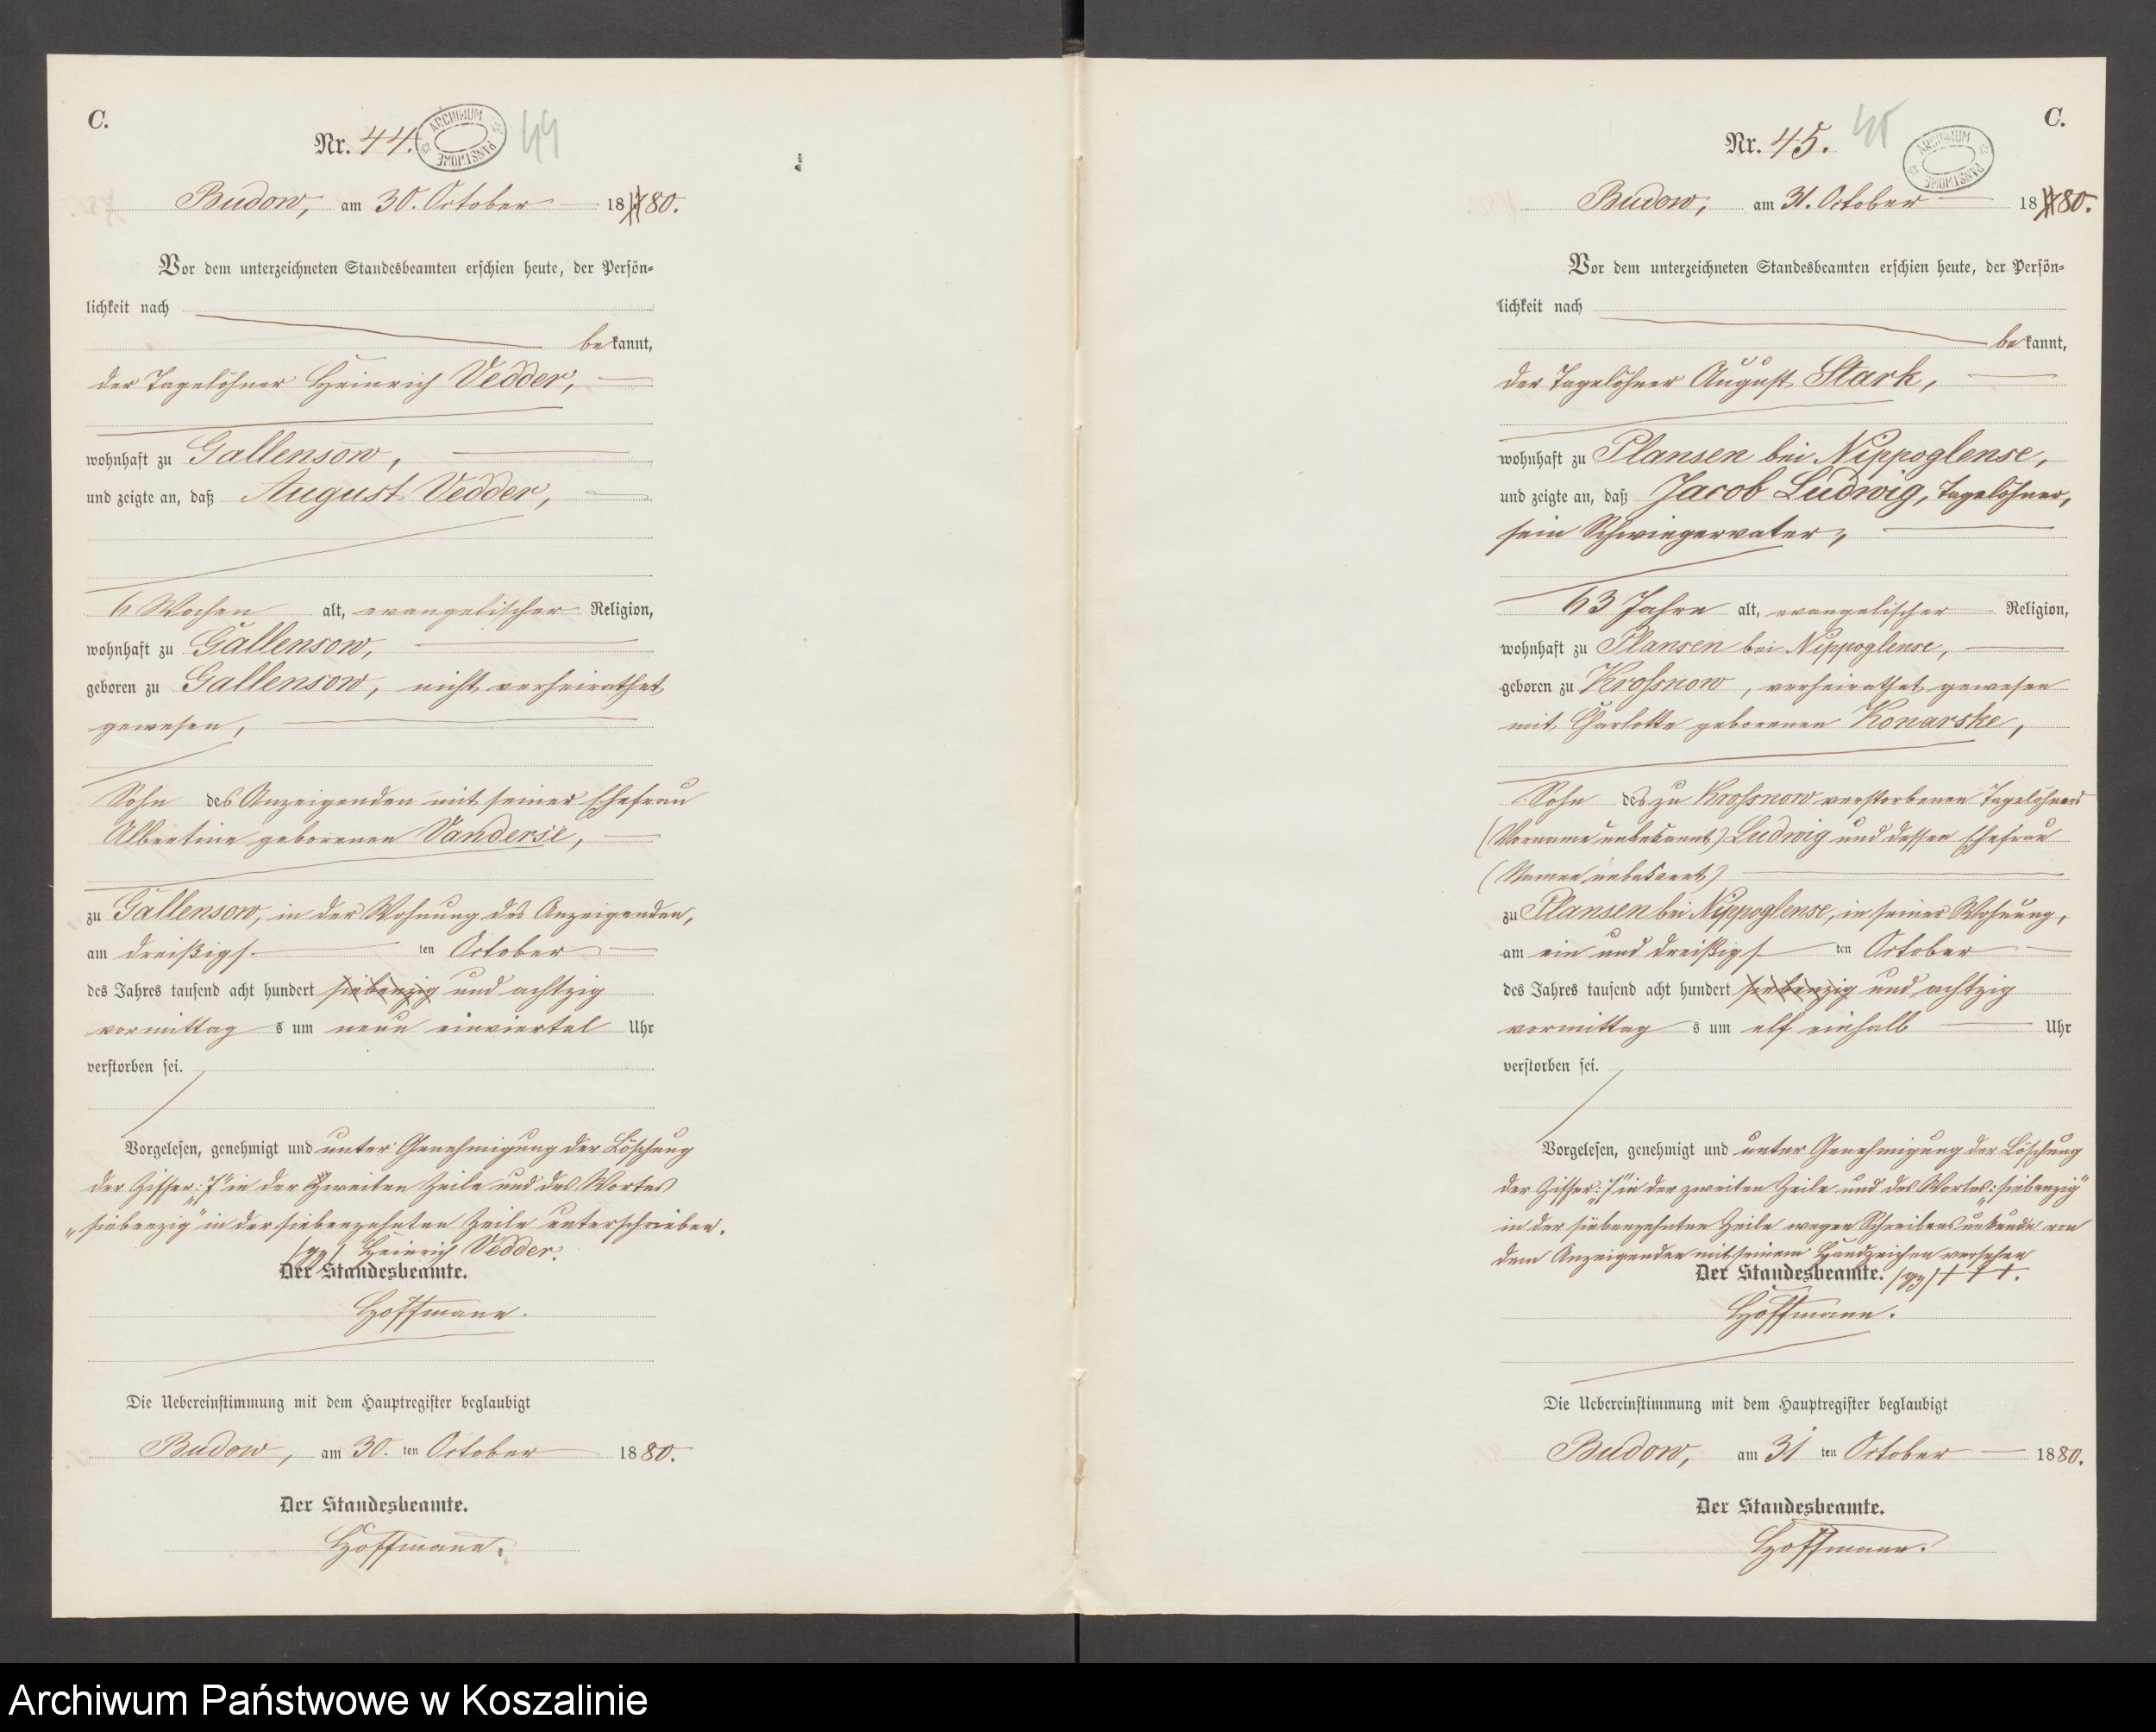 C.
Nr. 44.
ARCHIWUM PAŃSTWOWE
44
Budow, am 30. October 1880.
Vor dem unterzeichneten Standesbeamten erschien heute, der Persön-
lichkeit nach
bekannt,
der Tagelöhner Heinrich Vedder,
wohnhaft zu Gallensow,
und zeigte an, daß August Vedder,
6 Wochen alt, evangelischer Religion,
wohnhaft zu Gallensow,
geboren zu Gallensow, nicht verheirathet
gewesen,
Sohn des Anzeigenden mit seiner Ehefrau
Albertine geborenen Vanderse,
zu Gallensow, in der Wohnung des Anzeigenden,
am dreißigsten October
des Jahres tausend acht hundert siebenzig und achtzig
vormittags um neun einviertel Uhr
verstorben sei.
Vorgelesen, genehmigt und unter Genehmigung der Löschung
der Ziffer: "7" in der zweiten Zeile und des Wortes
"siebenzig" in der siebenzehnten Zeile unterschrieben.
/gz/ Heinrich Vedder.
Der Standesbeamte.
Hoffmann.
Die Uebereinstimmung mit dem Hauptregister beglaubigt
Budow, am 30. ten October 1880.
Der Standesbeamte.
Hoffmann.
C.
Nr. 45.
45
ARCHIWUM PAŃSTWOWE
Budow, am 31. October 1880.
Vor dem unterzeichneten Standesbeamten erschien heute, der Persön-
lichkeit nach
bekannt,
der Tagelöhner August Stark,
wohnhaft zu Plansen bei Nippoglense,
und zeigte an, daß Jacob Ludwig, Tagelöhner,
sein Schwiegervater,
63 Jahre alt, evangelischer Religion,
wohnhaft zu Plansen bei Nippoglense,
geboren zu Krossnow, verheirathet gewesen
mit Charlotte geborenen Konarske,
Sohn des zu Krossnow verstorbenen Tagelöhners
(Vorname unbekannt) Ludwig und dessen Ehefrau
(Namen unbekannt)
zu Plansen bei Nippoglense, in seiner Wohnung,
am ein und dreißigsten October
des Jahres tausend acht hundert siebenzig und achtzig
vormittags um elf einhalb Uhr
verstorben sei.
Vorgelesen, genehmigt und unter Genehmigung der Löschung
der Ziffer: "7" in der zweiten Zeile und des Wortes: "siebenzig"
in der siebenzehnten Zeile wegen Schreibensunkunde von
dem Anzeigenden mit seinem Handzeichen versehen
Der Standesbeamte. /gz/ + + +.
Hoffmann.
Die Uebereinstimmung mit dem Hauptregister beglaubigt
Budow, am 31 ten October 1880.
Der Standesbeamte.
Hoffmann.
Archiwum Państwowe w Koszalinie